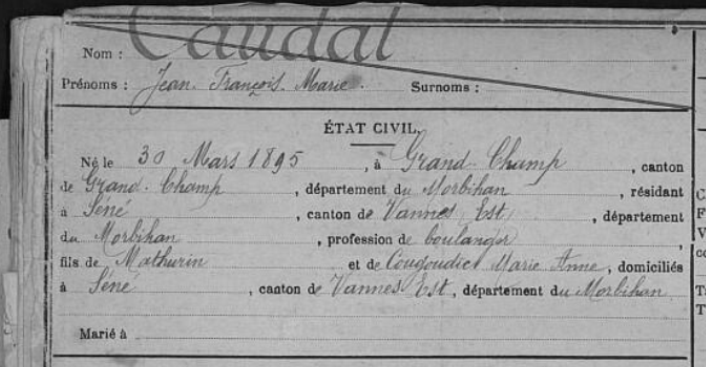 Nom : Caudal
Prénoms : Jean François Marie. Surnoms :
ÉTAT CIVIL.
Né le 30 Mars 1895, à Grand-Champ, canton
de Grand-Champ, département du Morbihan, résidant
à Séné, canton de Vannes Est, département
du Morbihan, profession de boulanger,
fils de Mathurin et de Cougoudic Marie Anne, domiciliés
à Séné, canton de Vannes Est, département du Morbihan.
Marié à